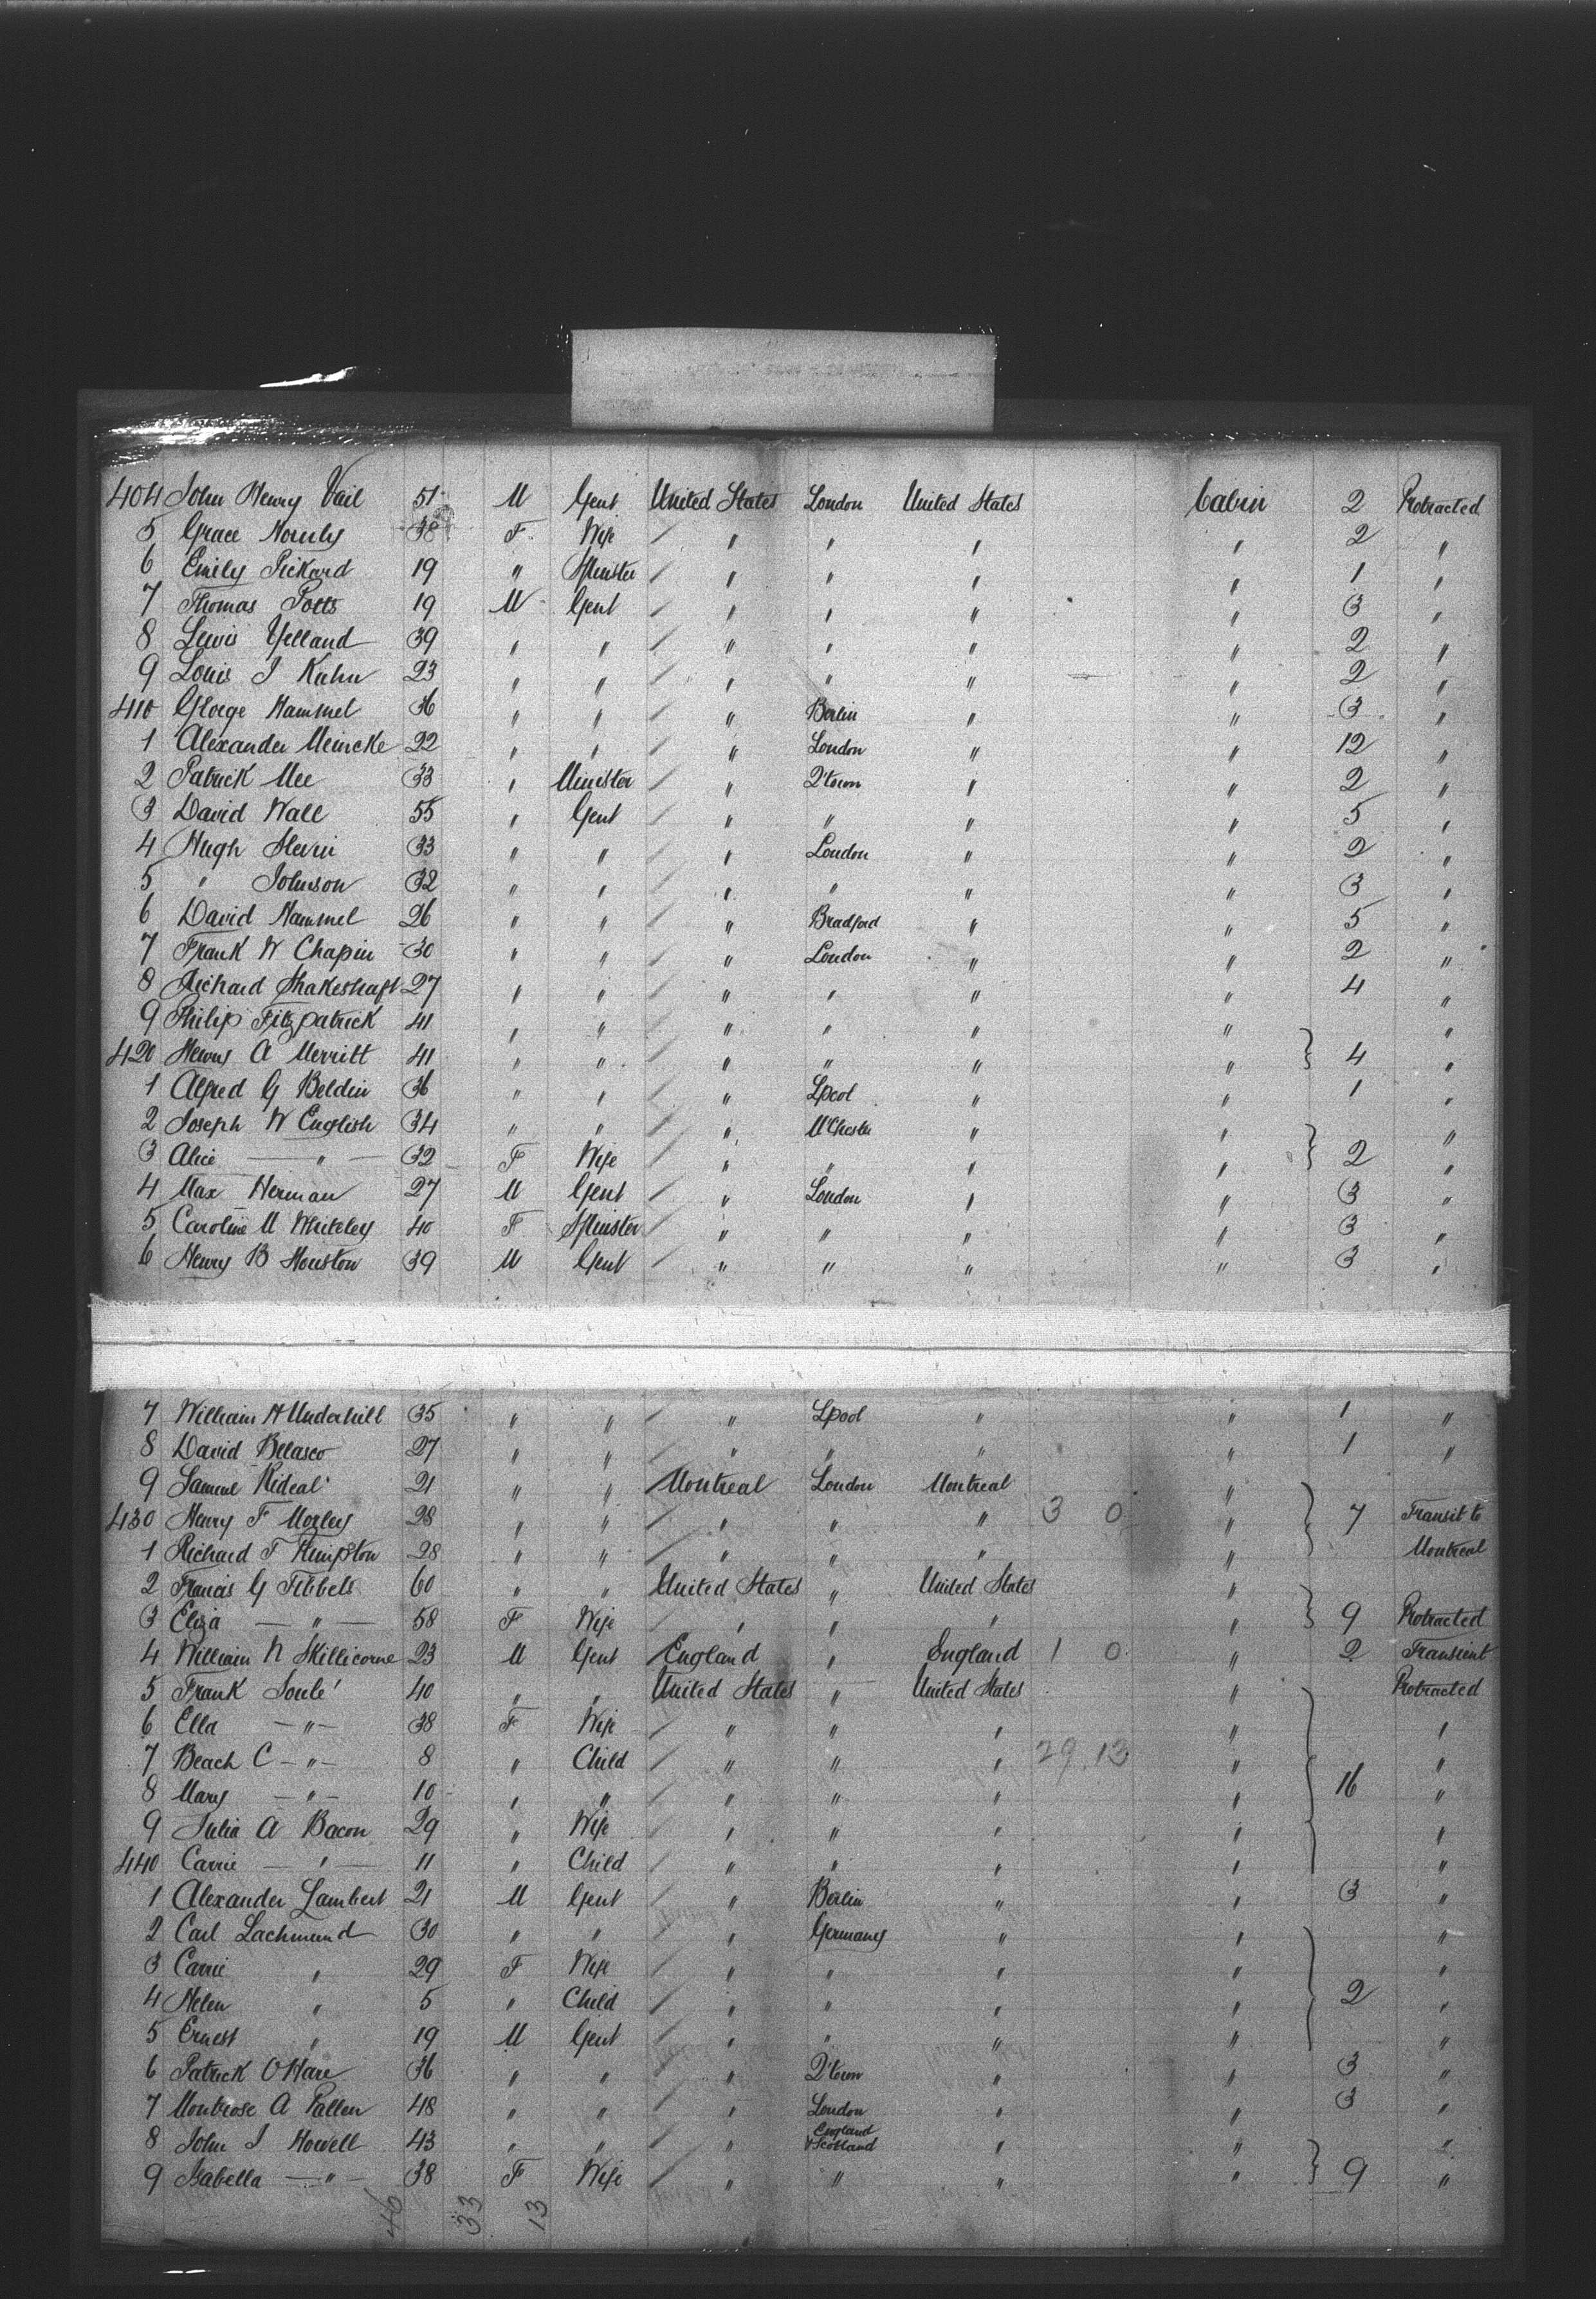 404 John Henry Vail 51 M Gent United States London United States Cabin 2 Protracted
5 Grace Hornby 38 F Wife / " " " " 2 "
6 Emily Pickard 19 " Spinster / " " " " 1 "
7 Thomas Potts 19 M Gent / " " " " 3 "
8 Lewis Yelland 39 " " / " " " " 2 "
9 Louis J Kuhn 23 " " / " " " " 2 "
410 George Hammel 36 " " / " Berlin " " 3 "
1 Alexander Meincke 22 " " / " London " " 12 "
2 Patrick Mee 33 " Minister / " Q'town " " 2 "
3 David Wall 55 " Gent / " " " " 5 "
4 Hugh 33 " " / " London " " 2 "
5 " Johnson 32 " " / " " " " 3 "
6 David Hammel 26 " " / " Bradford " " 5 "
7 Frank W Chapin 30 " " / " London " " 2 "
8 Richard Shakeshaft 27 " " / " " " " 4 "
9 Philip Fitzpatrick 41 " " / " " " " "
420 Henry A Merritt 41 " " / " " " " } 4 "
1 Alfred G Beldin 36 " " / " Lpool " " 1 "
2 Joseph W English 34 " " / " M'Chester " " "
3 Alice — " — 32 F Wife / " " " " } 2 "
4 Max Herman 27 M Gent / " London " " 3 "
5 Caroline M Whiteley 40 F Spinster / " " " " 3 "
6 Henry B Houston 39 M Gent / " " " " 3 "
7 William H Underhill 35 " " / " Lpool " " 1 "
8 David Belasco 27 " " / " " " " 1 "
9 Samuel Rideal 21 " " / Montreal London Montreal "
430 Henry F Morley 28 " " / " " " 3 0 " } 7 Transit to
1 Richard F Kimpton 28 " " / " " " " Montreal
2 Francis G Tibbels 60 " " United States " United States "
3 Eliza — " — 58 F Wife / " " " " } 9 Protracted
4 William N Skillicorne 23 M Gent / England " England 1 0 " 2 Transient
5 Frank Soulé 40 " " United States " United States " Protracted
6 Ella — " — 38 F Wife / " " " " "
7 Beach C — " — 8 " Child / " " " 29 13 " "
8 Mary — " — 10 " " / " " " " } 16 "
9 Julia A Bacon 29 " Wife / " " " " "
440 Carrie — " — 11 " Child / " " " " "
1 Alexander Lambert 21 M Gent / " Berlin " " 3 "
2 Carl Lachmund 30 " " / " Germany " " "
3 Carrie " 29 F Wife / " " " " "
4 Helen " 5 " Child / " " " " } 2 "
5 Ernest " 19 M Gent / " " " " "
6 Patrick O'Hare 36 " " / " Q'town " " 3 "
7 Montrose A Pallen 48 " " / " London " " 3 "
8 John J Howell 43 " " / " England & Scotland " " "
9 Isabella — " — 38 F Wife / " " " " } 9 "
46 33 13